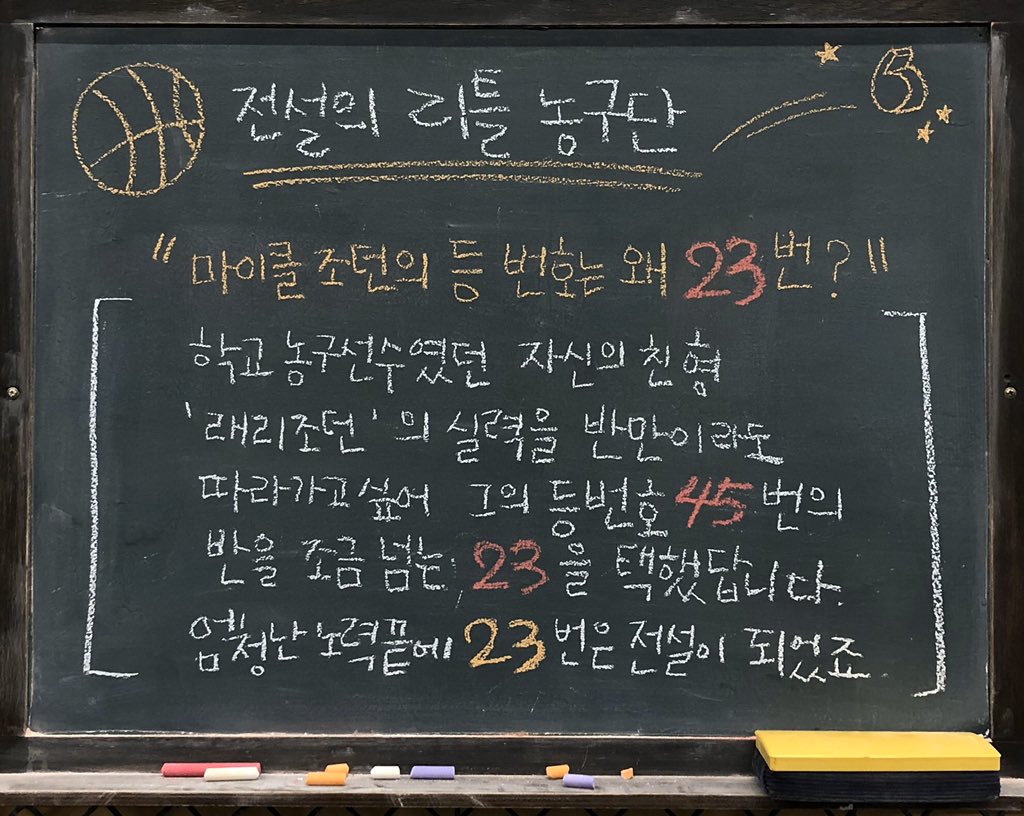 전설의 리틀 농구단
"마이클 조던의 등 번호는 왜 23번?"
학교 농구선수였던 자신의 친형
'래리조던'의 실력을 반만이라도
따라가고싶어 그의 등번호 45번의
반을 조금 넘는, 23을 택했답니다.
엄청난 노력끝에 23번은 전설이 되었죠